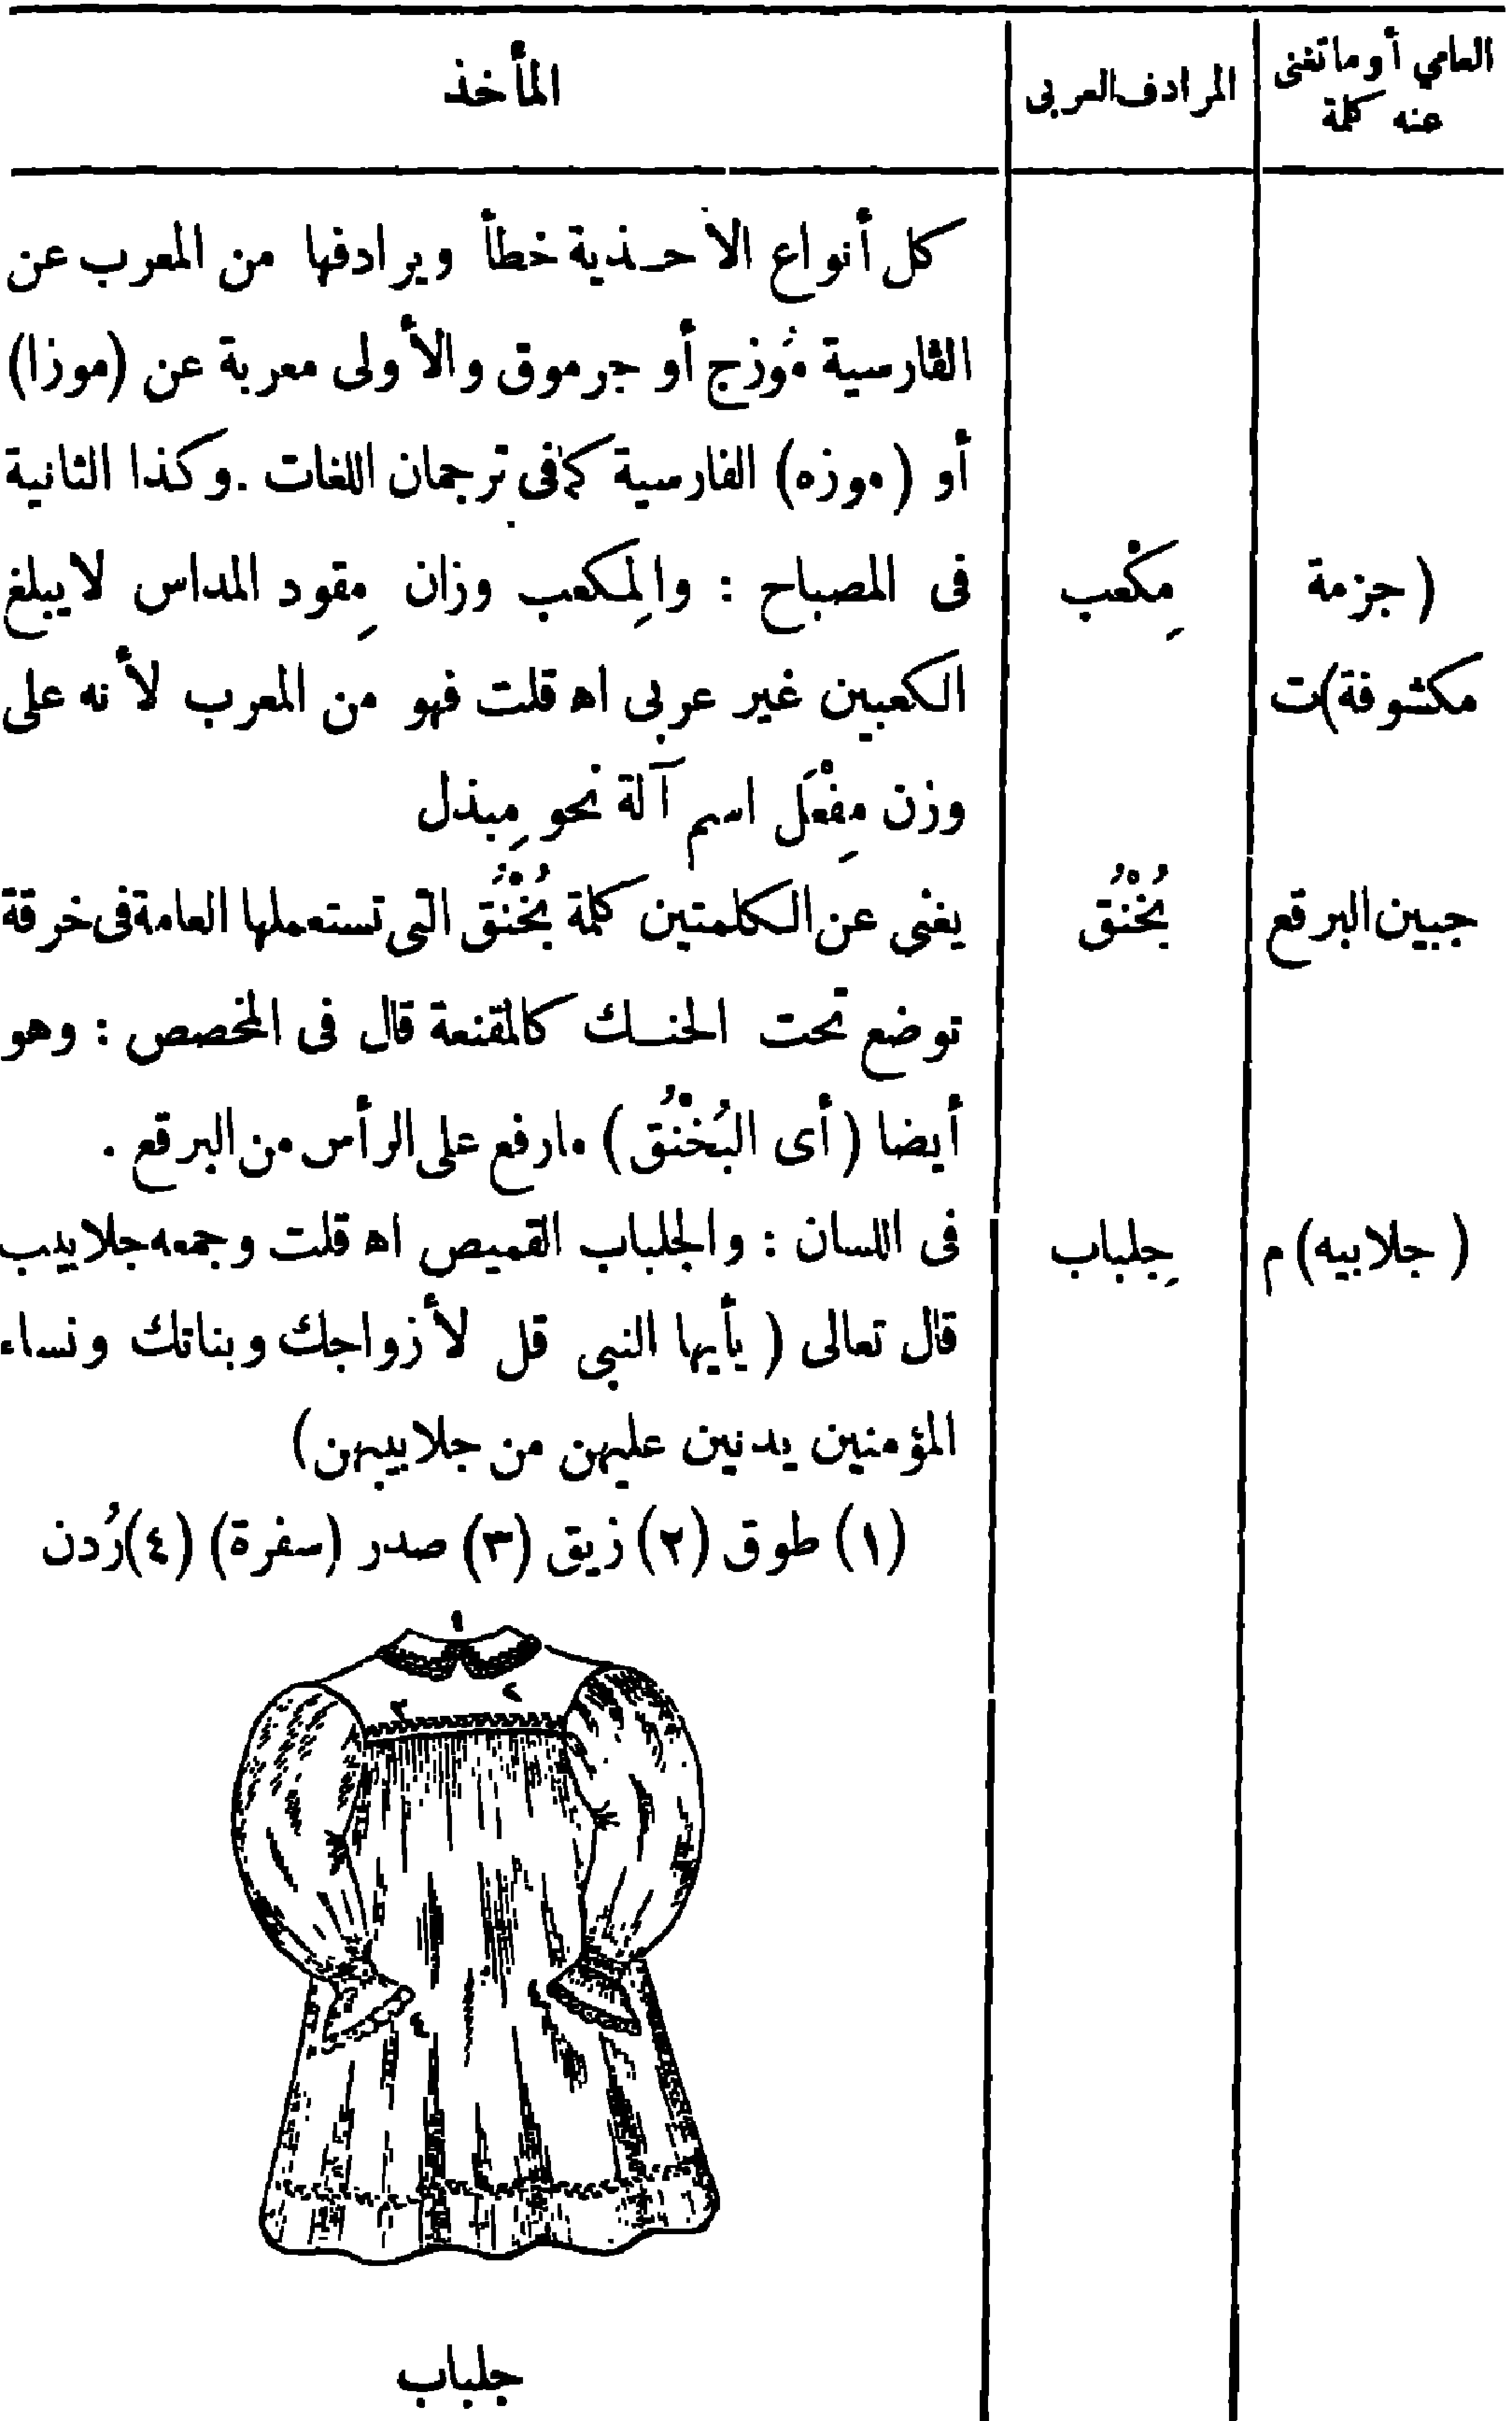 العامي أو ما تغنى عنه كلمة | المرادف العربى | المأخذ
كل أنواع الأحــذية خطأ ويرادفها من المعرب عن
الفارسية مُوزج أو جرموق والأولى معربة عن (موزا)
أو (موزه) الفارسية كما فى ترجمان اللغات . وكذا الثانية
(جزمة | مِكْعب | فى المصباح : والمِكعب وزان مِقود المداس لا يبلغ
مكشوفة) ت | الكعبين غير عربى اه قلت فهو من المعرب لأنه على
وزن مِفْعَل اسم آلة نحو مِبذل
جبين البرقع | بُخْنُق | يغنى عن الكلمتين كلمة بُخْنُق التى تستعملها العامة فى خرقة
توضع تحت الحنــك كالمقنعة قال فى المخصص : وهو
أيضا (أى البُخْنُق) ما رفع على الرأس من البرقع .
(جلابيه) م | جِلباب | فى اللسان : والجلباب القميص اه قلت وجمعه جلابيب
قال تعالى (يأيها النبى قل لأزواجك وبناتك ونساء
المؤمنين يدنين عليهن من جلابيبهن)
(١) طوق (٢) زيق (٣) صدر (سفرة) (٤) رُدن
١
٢
٣
٤
٤
جلباب